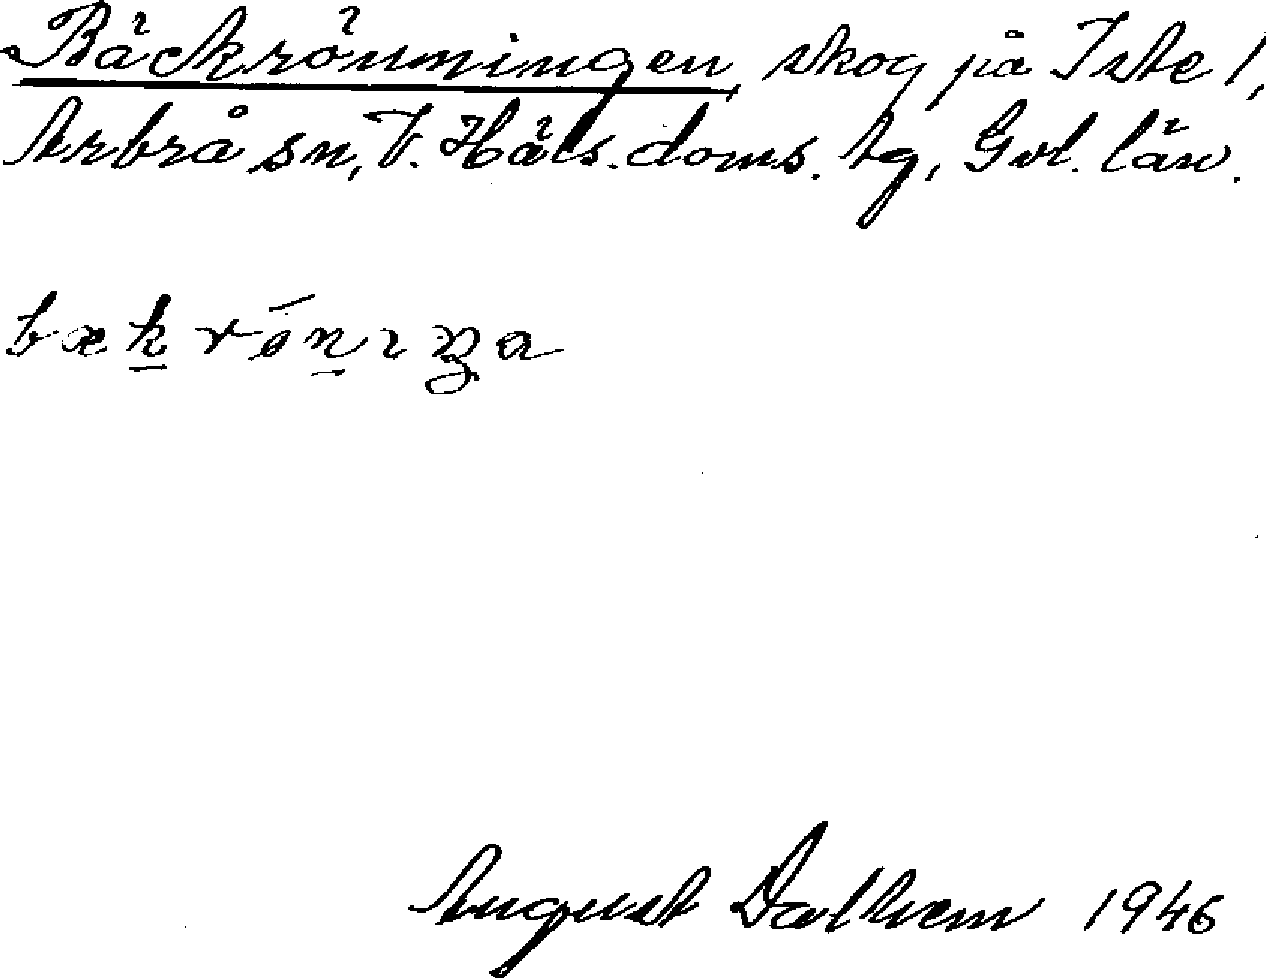 Bäckrönningen, skog på Iste 1,
Arbrå sn, V. Häls. doms. tg, Gvl. län.
bækrǿnıŋa
August Dalhem 1946